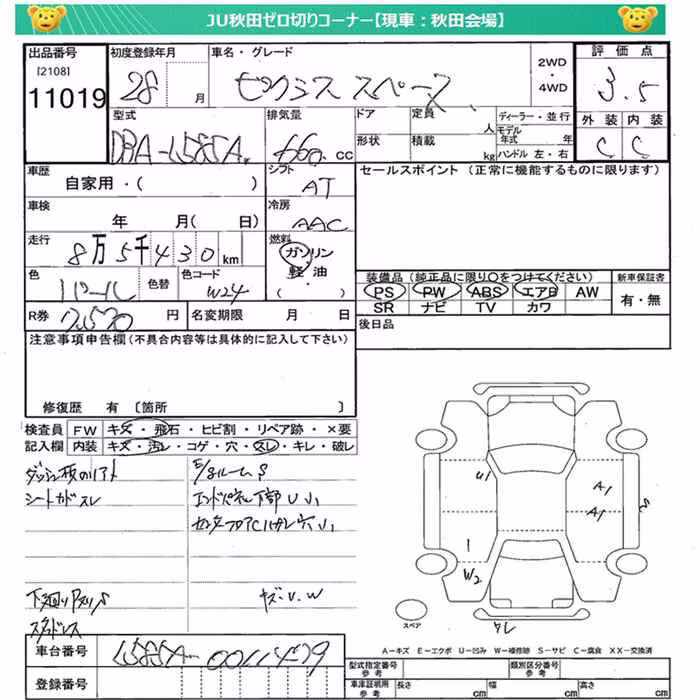 JU秋田ゼロ切りコーナー【現車:秋田会場】
出品番号 初度登録年月 車名・グレード 2WD ・ 4WD 評価点
[2108]
11019 28 月 ピクシス スペース 3.5
型式 排気量 ドア 定員 人 ディーラー・並行 外装 内装
DBA-L585A 660 cc 形状 積載 kg モデル年式 年 ハンドル 左・右 C C
車歴 シフト セールスポイント(正常に機能するものに限ります)
自家用・( ) AT
車検 冷房
年 月( 日) AAC
走行 燃料
8万5千430km ガソリン
軽・油
( )
色 色替 色コード 装備品(純正品に限り○をつけてください) 新車保証書
パール W24 PS PW ABS エアB AW 有・無
SR ナビ TV カワ
R券 円 名変期限 月 日 後日品
注意事項申告欄(不具合内容等は具体的に記入して下さい)
修復歴 有 〔箇所 〕
検査員 FW キズ・飛石・ヒビ割・リペア跡・×要
記入欄 内装 キズ・汚レ・コゲ・穴・スレ・キレ・破レ
ダッシュ板のリアト E/gルームS
シートカドスレ エンドパネル下部U小
センターフロアCハガレ穴小
下廻りPスリS キズ・U.W
スタッドレス
U1
A1
A1
S
W2
スレ
スペア
A-キズ E-エクボ U-凹み W-補修跡 S-サビ C-腐食 XX-交換済
車台番号 L585A-0011479
登録番号
型式指定番号 参考 類別区分番号 参考
車庫証明用 参考 長さ cm 幅 cm 高さ cm